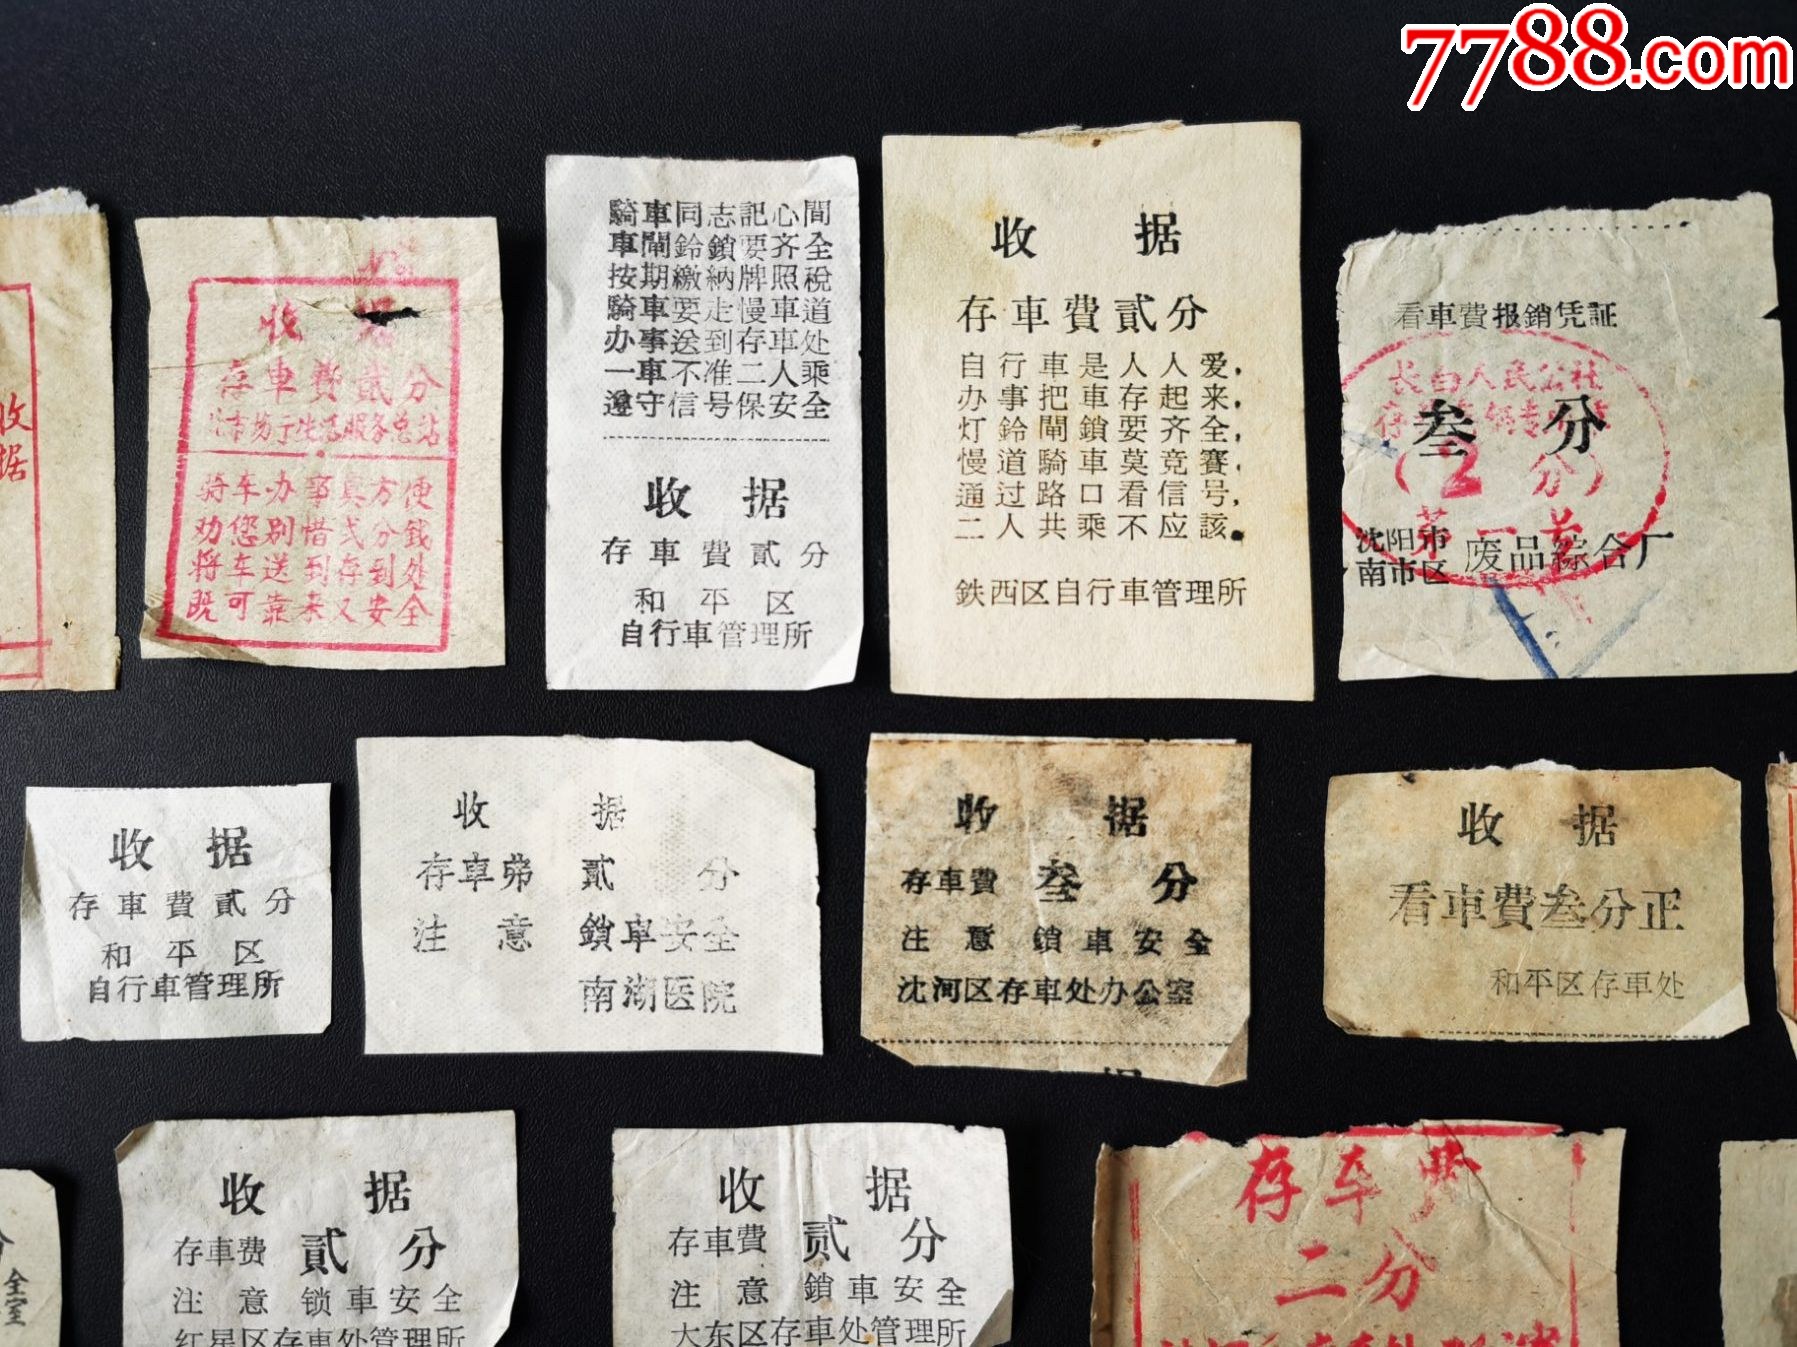 7788.com
收
据
收 据
存车费贰分
骑车办事真方便
劝您别惜弍分钱
将车送到存到处
既可靠来又安全
騎車同志記心間
車閘鈴鎖要齐全
按期繳納牌照稅
騎車要走慢車道
办事送到存車处
一車不准二人乘
遵守信号保安全
收 据
存車費貳分
和平区
自行車管理所
收 据
存車費貳分
自行車是人人爱，
办事把車存起来，
灯鈴閘鎖要齐全，
慢道騎車莫竞賽，
通过路口看信号，
二人共乘不应該。
鉄西区自行車管理所
看車費报銷凭証
长白人民公社
叁 分
(2 分)
沈阳市
南市区
废品綜合厂
收 据
存車費貳分
和平区
自行車管理所
收 据
存車弗 貳 分
注 意 鎖車安全
南湖医院
收 据
存車費 叁 分
注 意 鎖車安全
沈河区存車处办公室
收 据
看車費叁分正
和平区存車处
全
室
收 据
存車费 貳 分
注 意 锁車安全
红星区存車处管理所
收 据
存車費 贰 分
注 意 鎖車安全
大东区存車处管理所
存车费
二分